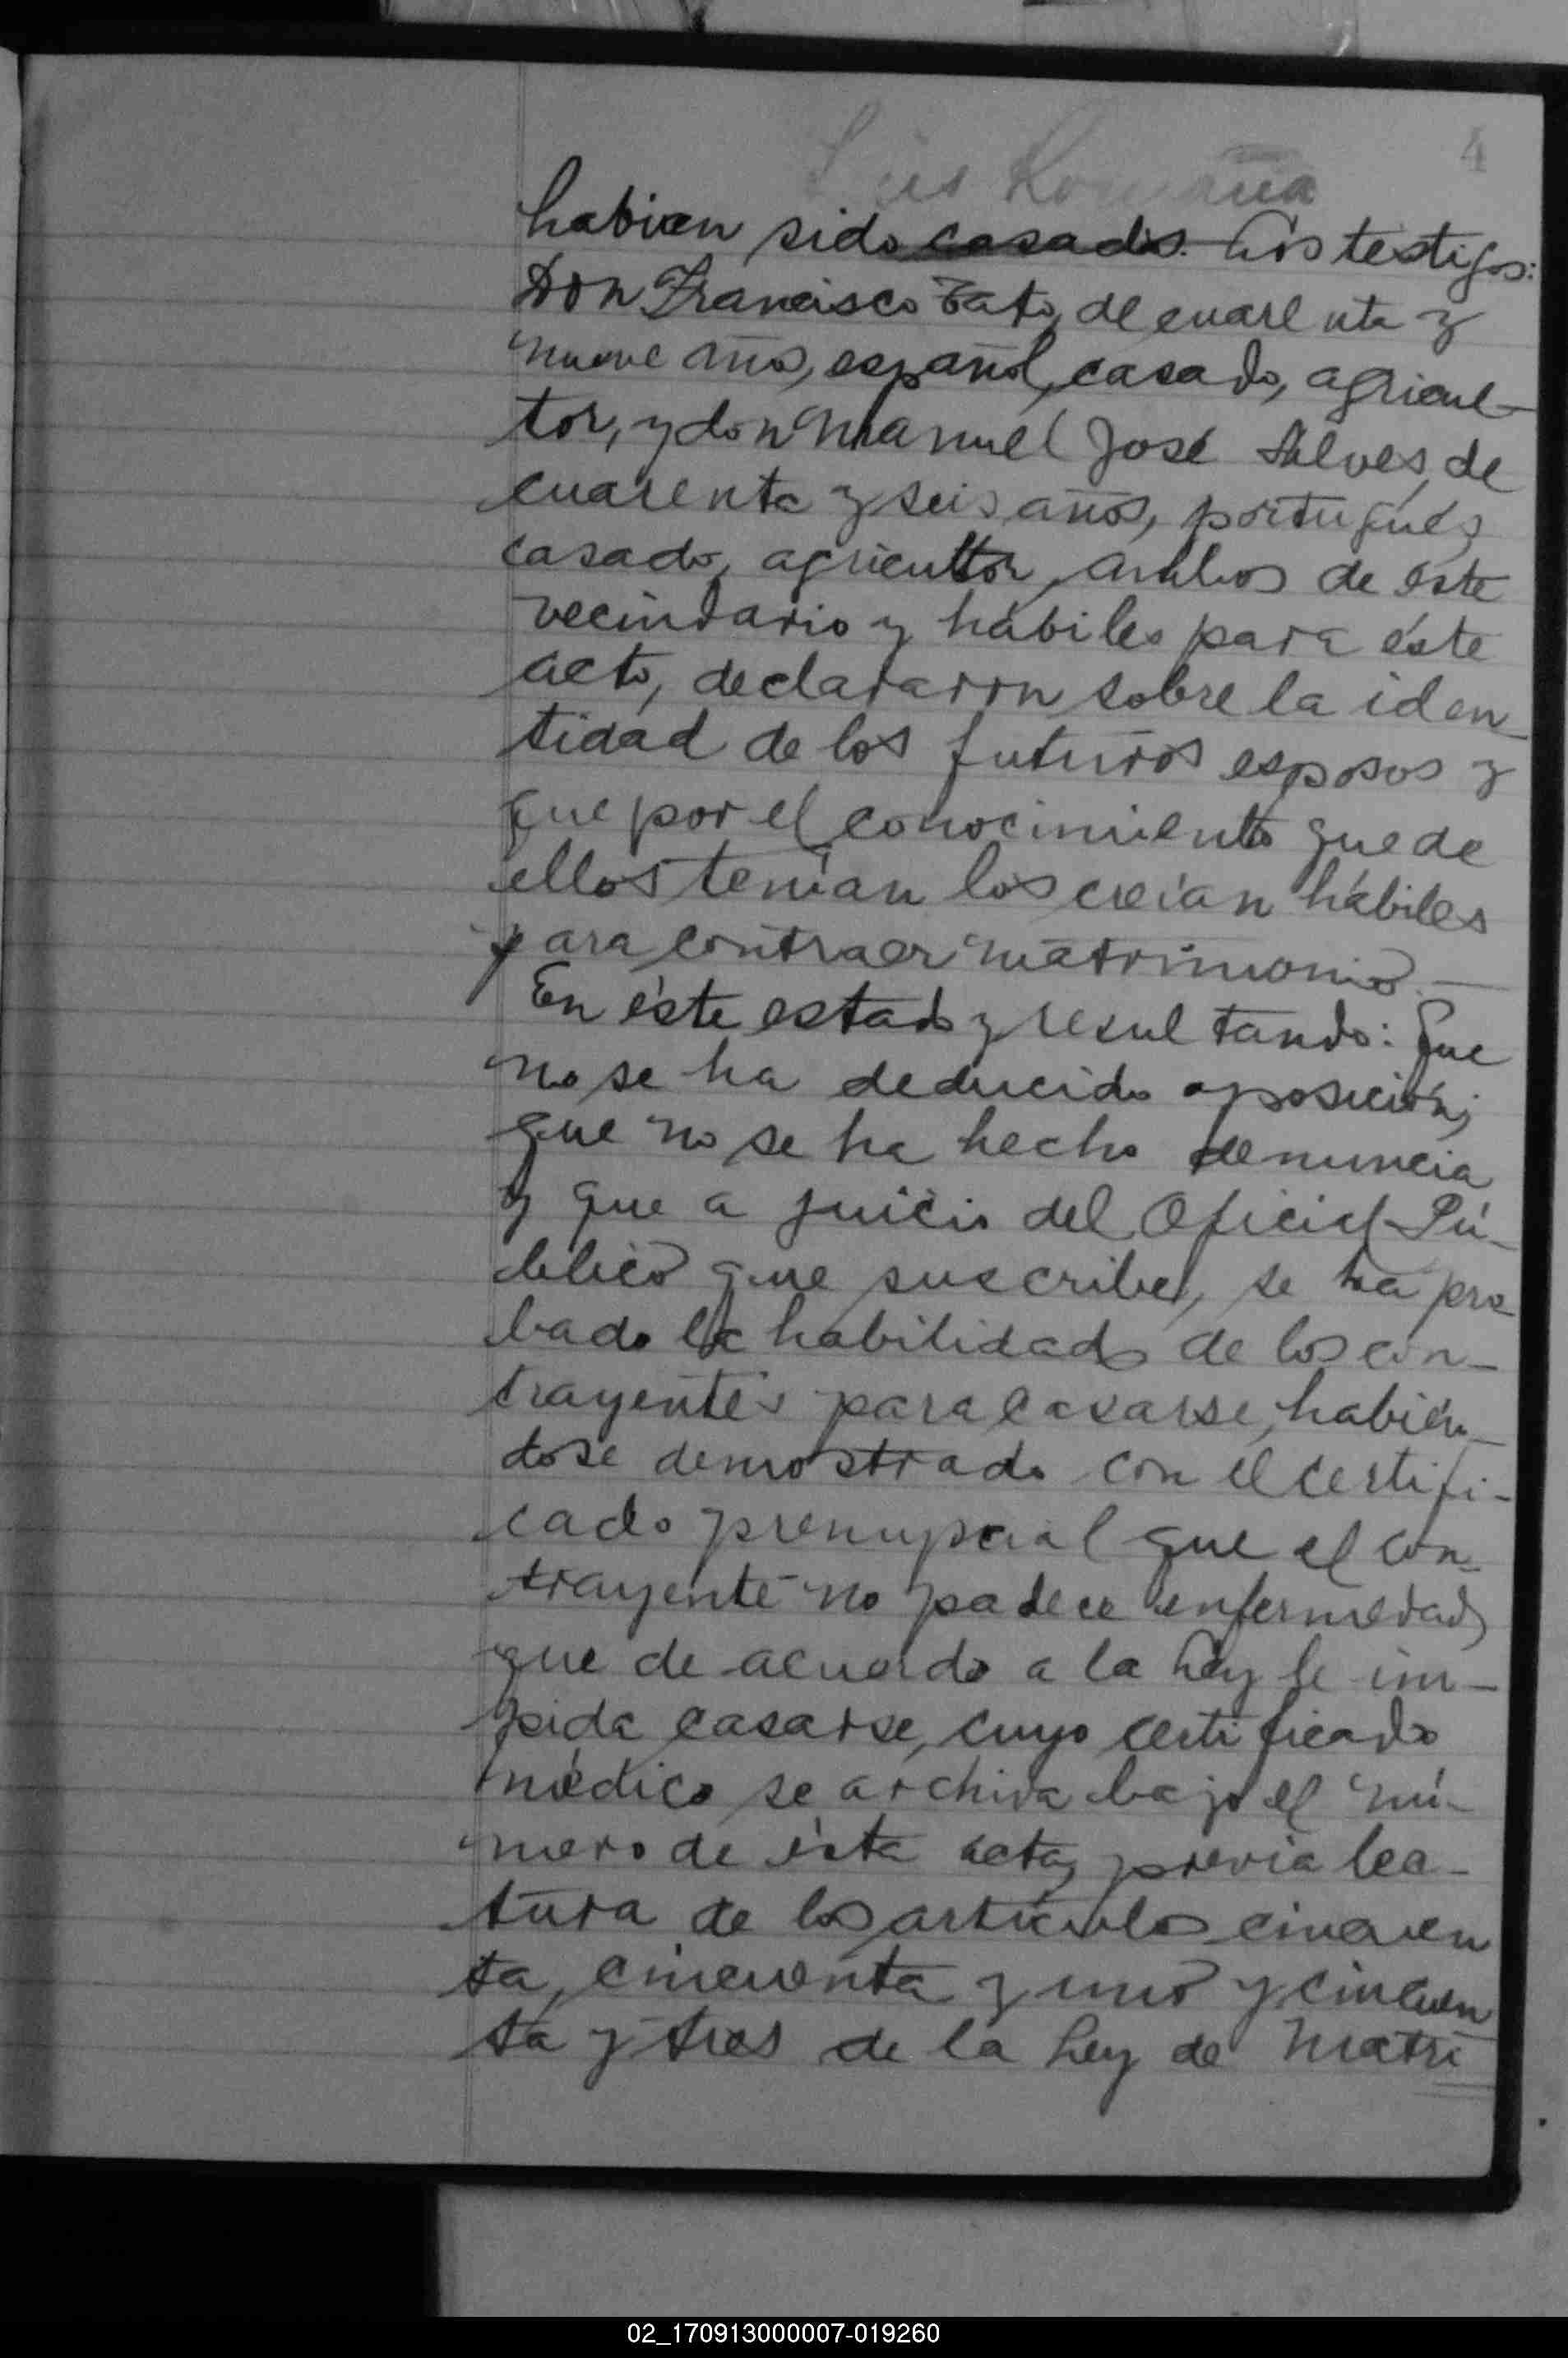 4
Luis Romaña
habian sido casados. Los testigos:
Don Francisco Tato, de cuarenta y
nueve años, español, casado, agricul-
tor, y don Manuel José Alves, de
cuarenta y seis años, portugués,
casado, agricultor, ambos de éste
vecindario y hábiles para éste
acto, declararon sobre la iden
tidad de los futuros esposos y
que por el conocimiento que de
ellos tenían los creían hábiles
para contraer matrimonio.—
En éste estado y resultando: Que
no se ha deducido oposición;
que no se ha hecho denuncia
y que a juicio del Oficial Pú-
blico que suscribe, se ha pro
bado la habilidad de los con-
trayentes para casarse, habién-
dose demostrado con el certifi-
cado prenupcial que el con-
trayente no padece enfermedad
que de acuerdo a la Ley le im-
pida casarse, cuyo certificado
médico se archiva bajo el nú-
mero de ésta acta, previa lec-
tura de los artículos cincuen
ta, cincuenta y uno y cincuen
ta y tres de la Ley de Matri
02_170913000007-019260